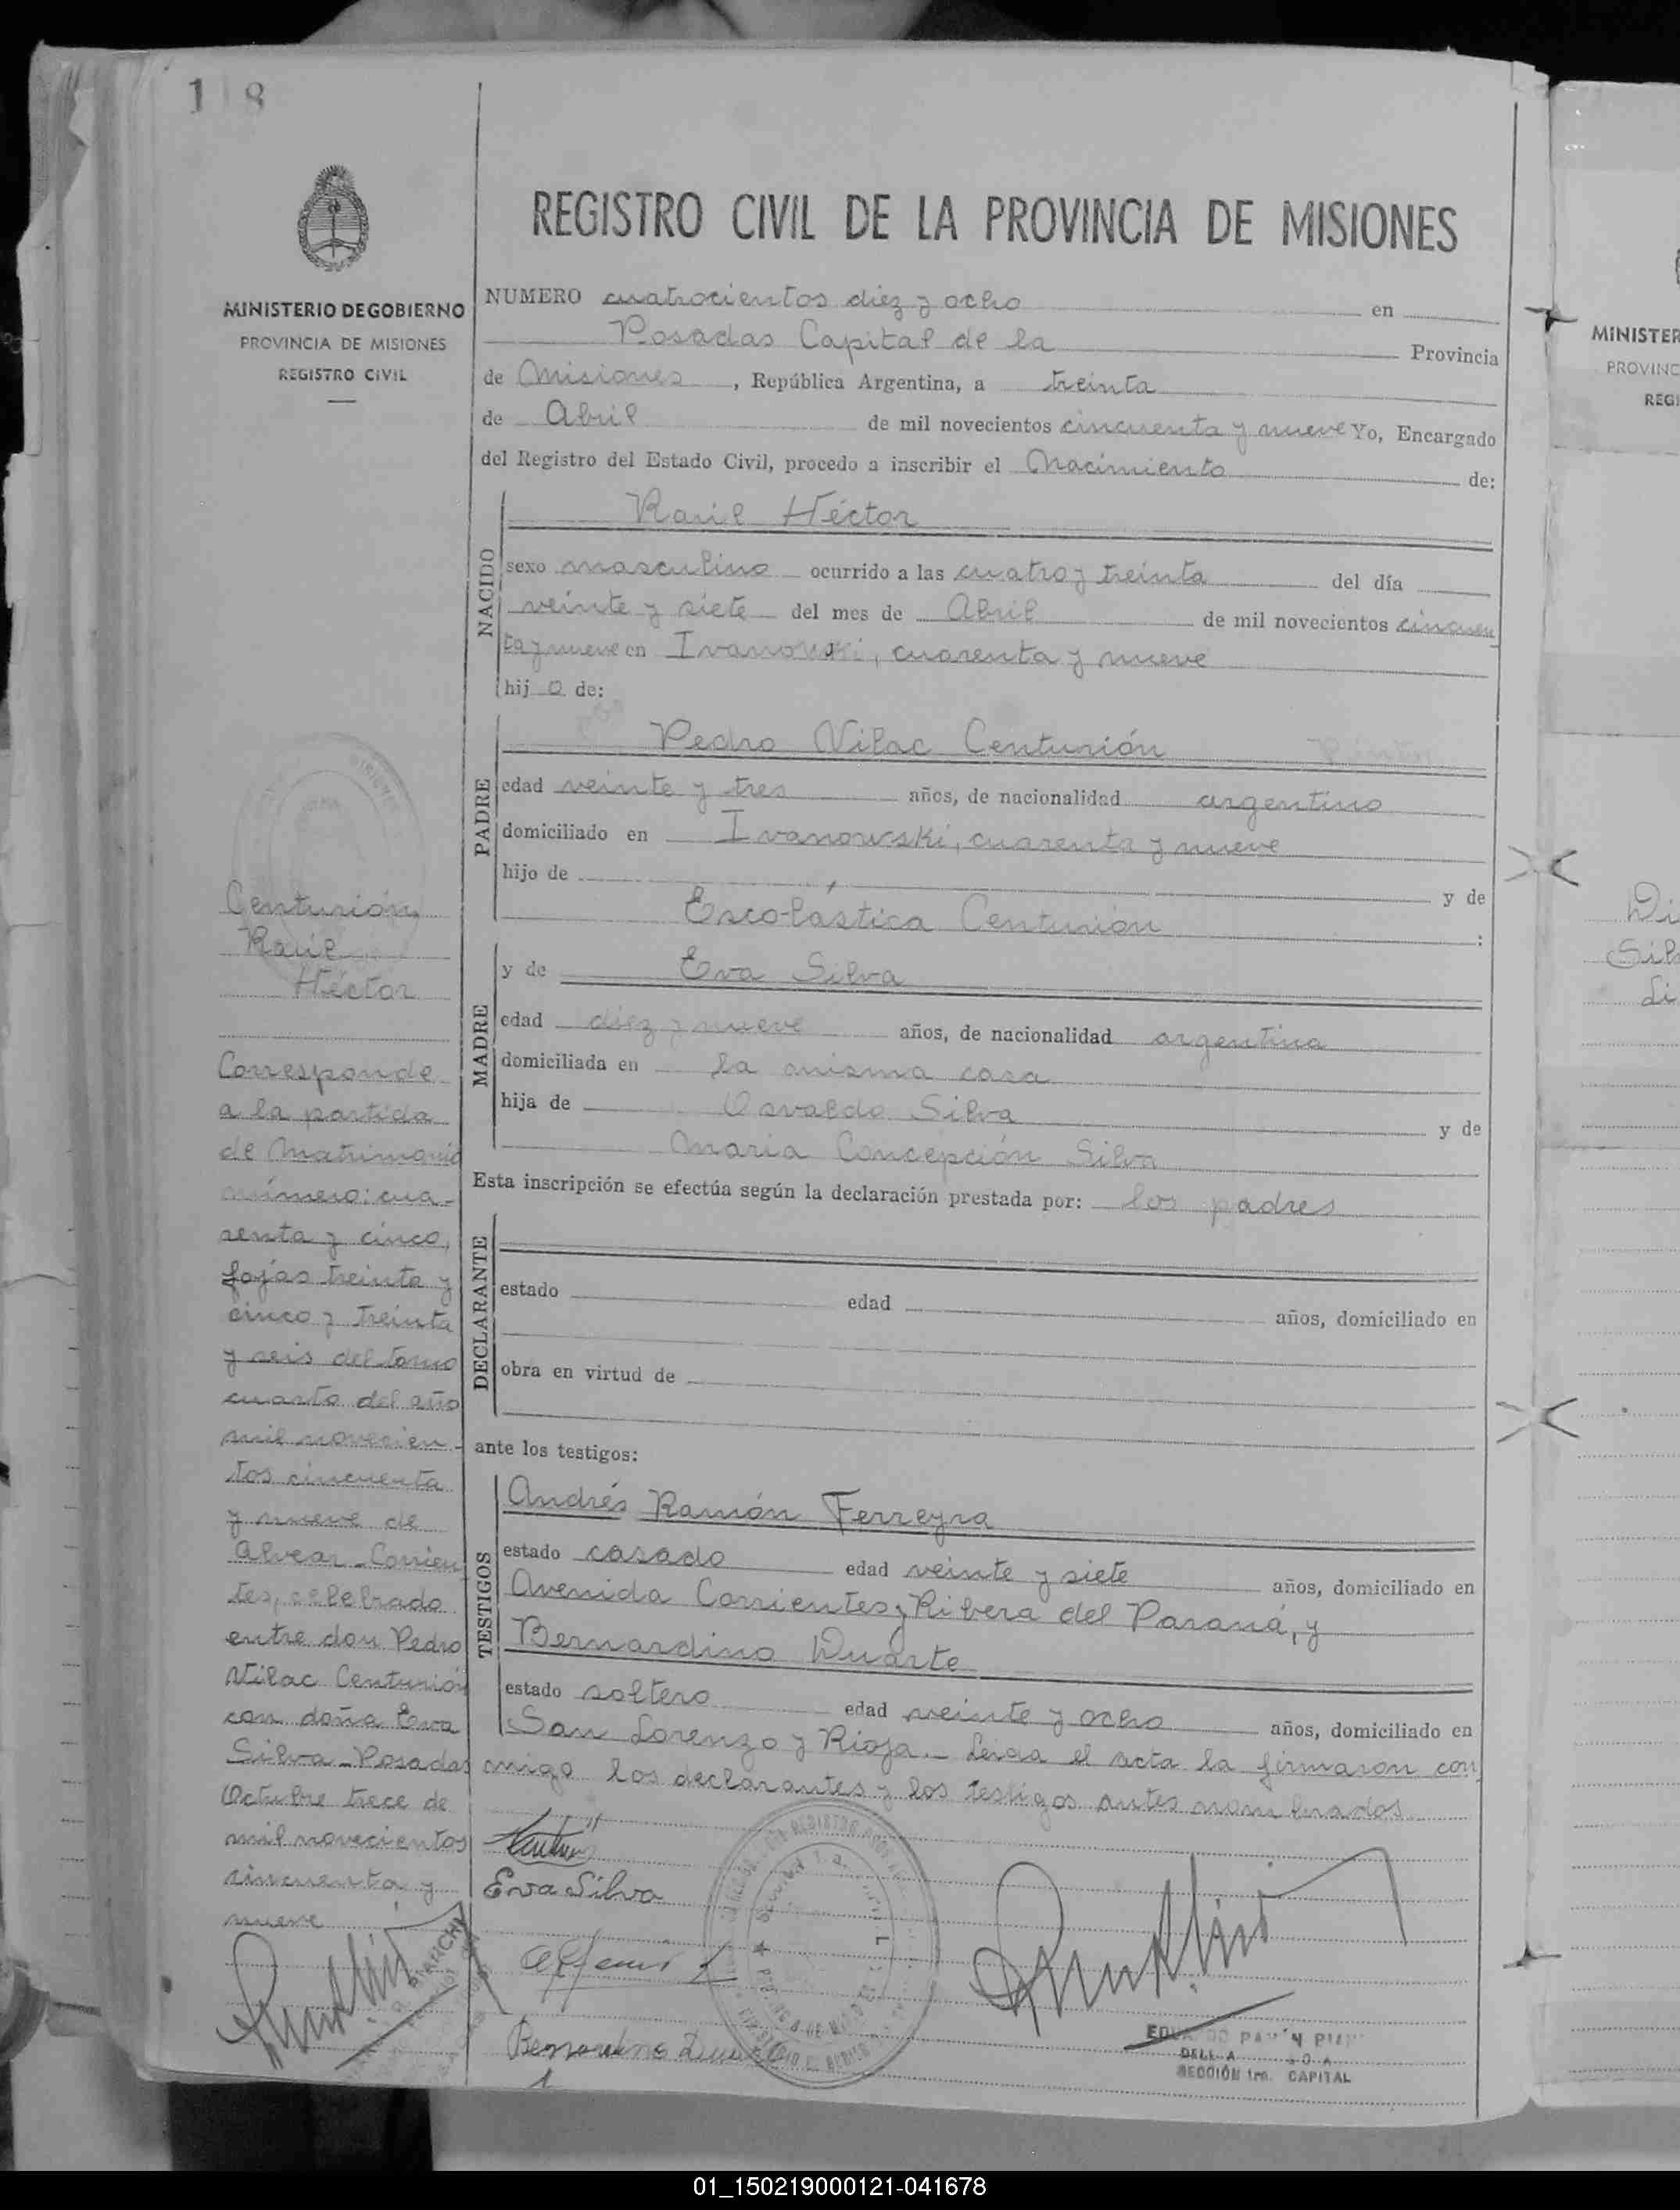 118
MINISTERIO DE GOBIERNO
PROVINCIA DE MISIONES
REGISTRO CIVIL
REGISTRO CIVIL DE LA PROVINCIA DE MISIONES
NUMERO cuatrocientos diez y ocho en
Posadas Capital de la Provincia
de Misiones, República Argentina, a treinta
de Abril de mil novecientos cincuenta y nueve Yo, Encargado
del Registro del Estado Civil, procedo a inscribir el Nacimiento de:
NACIDO
Raúl Héctor
sexo masculino ocurrido a las cuatro y treinta del día
veinte y siete del mes de Abril de mil novecientos cincuen
ta y nueve en Ivanowski, cuarenta y nueve
hij o de:
PADRE
Pedro Nilac Centurión
edad veinte y tres años, de nacionalidad argentino
domiciliado en Ivanowski, cuarenta y nueve
hijo de y de
Escolástica Centurión :
MADRE
y de Eva Silva
edad diez y nueve años, de nacionalidad argentina
domiciliada en la misma casa
hija de Osvaldo Silva y de
Maria Concepción Silva
Esta inscripción se efectúa según la declaración prestada por: los padres
DECLARANTE
estado edad años, domiciliado en
obra en virtud de
ante los testigos:
TESTIGOS
Andrés Ramón Ferreyra
estado casado edad veinte y siete años, domiciliado en
Avenida Corrientes y Ribera del Paraná, y
Bernardino Duarte
estado soltero edad veinte y ocho años, domiciliado en
San Lorenzo y Rioja.- Leida el acta la firmaron con
migo los declarantes y los testigos antes nombrados
Eva Silva
Bernardino Duarte
SECCIÓN 1ra. CAPITAL
Centurión
Raúl
Héctor
Corresponde
a la partida
de Matrimonio
número: cua-
renta y cinco,
fojas treinta y
cinco y treinta
y seis del tomo
cuarto del año
mil novecien-
tos cincuenta
y nueve de
Alvear-Corrien
tes, celebrado
entre don Pedro
Nilac Centurión
con doña Eva
Silva-Posadas
Octubre trece de
mil novecientos
cincuenta y
nueve
MINISTER
PROVINC
REGI
Di
Silv
Li
01_150219000121-041678